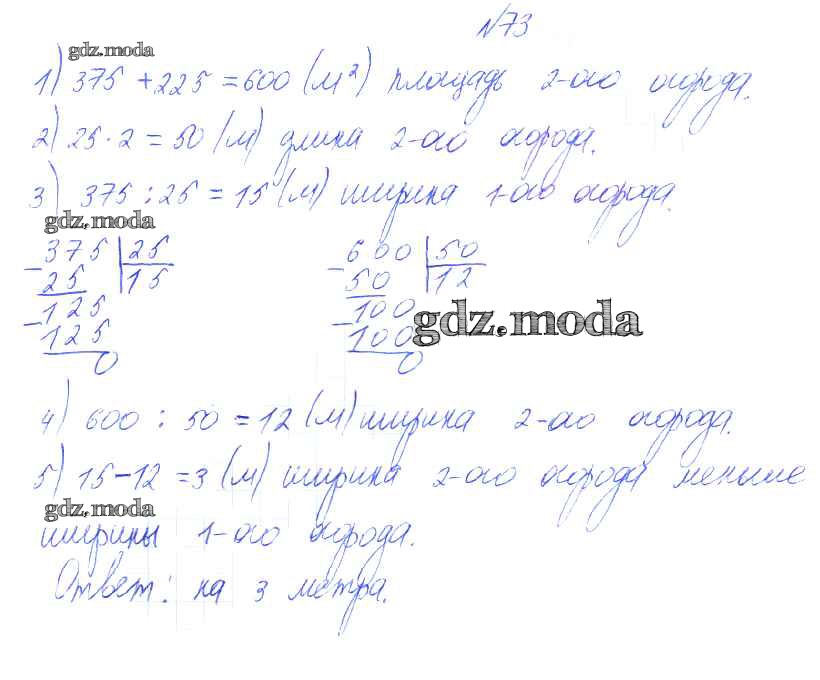 №73
gdz.moda
1) 375 + 225 = 600 (м²) площадь 2-ого огорода.
2) 25 · 2 = 50 (м) длина 2-ого огорода.
3) 375 : 25 = 15 (м) ширина 1-ого огорода.
gdz.moda
- 375 | 25
25 | 15
- 125
125
0
- 600 | 50
50 | 12
- 100
100
0
gdz.moda
4) 600 : 50 = 12 (м) ширина 2-ого огорода.
5) 15 - 12 = 3 (м) ширина 2-ого огорода меньше
gdz.moda
ширины 1-ого огорода.
Ответ: на 3 метра.